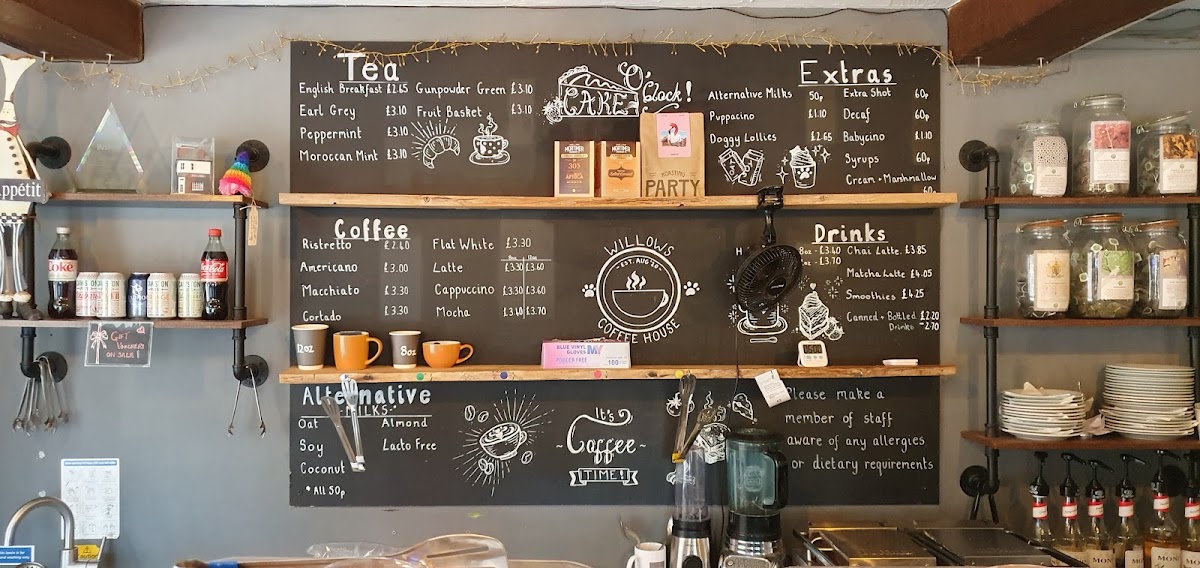 Tea
English Breakfast £2.65
Earl Grey £3.10
Peppermint £3.10
Moroccan Mint £3.10
Gunpowder Green £3.10
Fruit Basket £3.10
CAKE O'Clock!
MORTIMER
MORTIMER
ROASTING
PARTY
Extras
Alternative Milks 50p
Puppacino £1.10
Doggy Lollies £2.65
Extra Shot 60p
Decaf 60p
Babycino £1.10
Syrups 60p
Cream + Marshmallow 60p
ppétit
Coke
Coca-Cola
GIFT
VOUCHERS
ON SALE!
Coffee
Ristretto £2.60
Americano £3.00
Macchiato £3.30
Cortado £3.30
Flat White £3.30
8oz 12oz
Latte £3.30 £3.60
Cappuccino £3.30 £3.60
Mocha £3.40 £3.70
WILLOWS
EST. AUG 28
COFFEE HOUSE
Drinks
H
8oz - £3.40
- £3.70
Chai Latte £3.85
Matcha Latte £4.05
Smoothies £4.25
Canned + Bottled £2.20
Drinks -2.70
12oz
8oz
BLUE VINYL
GLOVES MY
POWDER FREE
100
Alternative
MILKS
Oat
Soy
Coconut
* All 50p
Almond
Lacto Free
It's
Coffee
TIME!
Please make a
member of staff
aware of any allergies
or dietary requirements